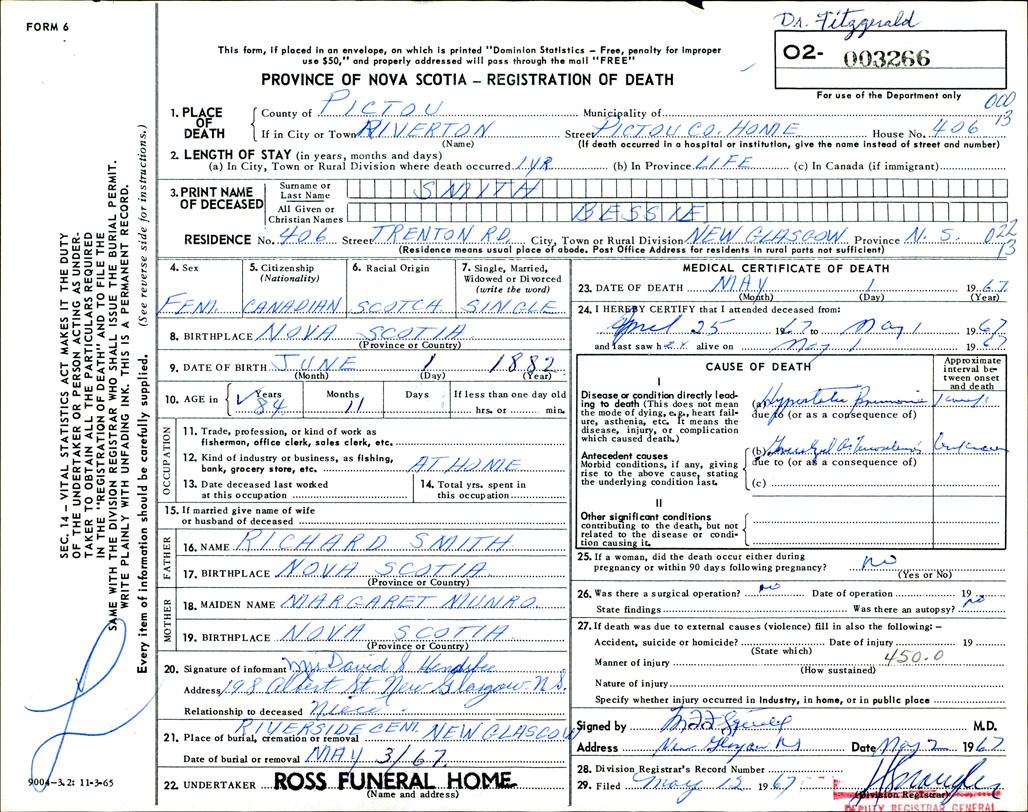 FORM 6
Dr. Fitzgerald
This form, if placed in an envelope, on which is printed "Dominion Statistics – Free, penalty for improper
use $50," and properly addressed will pass through the mail "FREE"
O2- 003266
PROVINCE OF NOVA SCOTIA – REGISTRATION OF DEATH
For use of the Department only
000
13
1. PLACE OF DEATH
County of PICTOU Municipality of
If in City or Town RIVERTON Street PICTOU CO. HOME House No. 406
(Name) (If death occurred in a hospital or institution, give the name instead of street and number)
2. LENGTH OF STAY (in years, months and days)
(a) In City, Town or Rural Division where death occurred 1 YR (b) In Province LIFE (c) In Canada (if immigrant)
3. PRINT NAME OF DECEASED
Surname or Last Name SMITH
All Given or Christian Names BESSIE
RESIDENCE No. 406 Street TRENTON RD. City, Town or Rural Division NEW GLASGOW Province N. S. 022
13
(Residence means usual place of abode. Post Office Address for residents in rural parts not sufficient)
4. Sex
FEM.
5. Citizenship (Nationality)
CANADIAN
6. Racial Origin
SCOTCH
7. Single, Married, Widowed or Divorced (write the word)
SINGLE
8. BIRTHPLACE NOVA SCOTIA
(Province or Country)
9. DATE OF BIRTH JUNE 1 1882
(Month) (Day) (Year)
10. AGE in Years Months Days If less than one day old
84 11 hrs. or min.
OCCUPATION
11. Trade, profession, or kind of work as
fisherman, office clerk, sales clerk, etc.
12. Kind of industry or business, as fishing,
bank, grocery store, etc. AT HOME
13. Date deceased last worked
at this occupation
14. Total yrs. spent in
this occupation
15. If married give name of wife
or husband of deceased
FATHER
16. NAME RICHARD SMITH
17. BIRTHPLACE NOVA SCOTIA
(Province or Country)
MOTHER
18. MAIDEN NAME MARGARET MUNRO.
19. BIRTHPLACE NOVA SCOTIA
(Province or Country)
20. Signature of informant Mrs David
Address 198 Albert St. New Glasgow N.S.
Relationship to deceased Niece.
21. Place of burial, cremation or removal RIVERSIDE CEM. NEW GLASGOW
Date of burial or removal MAY 3/67.
22. UNDERTAKER ROSS FUNERAL HOME.
(Name and address)
MEDICAL CERTIFICATE OF DEATH
23. DATE OF DEATH MAY 1 1967
(Month) (Day) (Year)
24. I HEREBY CERTIFY that I attended deceased from:
April 25 1967 to May 1 1967
and last saw her alive on May 1 1967
CAUSE OF DEATH
Approximate interval between onset and death
I
Disease or condition directly leading to death (This does not mean
the mode of dying, e.g., heart failure, asthenia, etc. It means the
disease, injury, or complication
which caused death.)
(a) Hypostatic Pneumonia
due to (or as a consequence of)
Antecedent causes
Morbid conditions, if any, giving
rise to the above cause, stating
the underlying condition last.
(b)
due to (or as a consequence of)
(c)
II
Other significant conditions
contributing to the death, but not
related to the disease or condition causing it.
25. If a woman, did the death occur either during
pregnancy or within 90 days following pregnancy? no
(Yes or No)
26. Was there a surgical operation? no Date of operation 19
State findings Was there an autopsy? no
27. If death was due to external causes (violence) fill in also the following: –
Accident, suicide or homicide? Date of injury 19
(State which)
450.0
Manner of injury
(How sustained)
Nature of injury
Specify whether injury occurred in industry, in home, or in public place
Signed by M.D.
Address Date May 2 1967
28. Division Registrar's Record Number
29. Filed May 12 1967
(Division Registrar)
DEPUTY REGISTRAR GENERAL
SEC. 14 – VITAL STATISTICS ACT MAKES IT THE DUTY
OF THE UNDERTAKER OR PERSON ACTING AS UNDER-
TAKER TO OBTAIN ALL THE PARTICULARS REQUIRED
IN THE "REGISTRATION OF DEATH" AND TO FILE THE
SAME WITH THE DIVISION REGISTRAR WHO SHALL ISSUE THE BURIAL PERMIT.
WRITE PLAINLY WITH UNFADING INK. THIS IS A PERMANENT RECORD.
Every item of information should be carefully supplied. (See reverse side for instructions.)
9004-3.2: 11-3-65